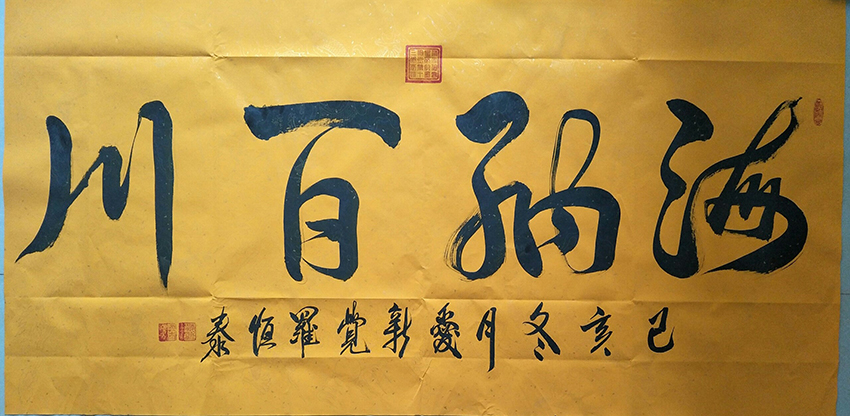 海納百川
己亥冬月愛新覺羅恒泰